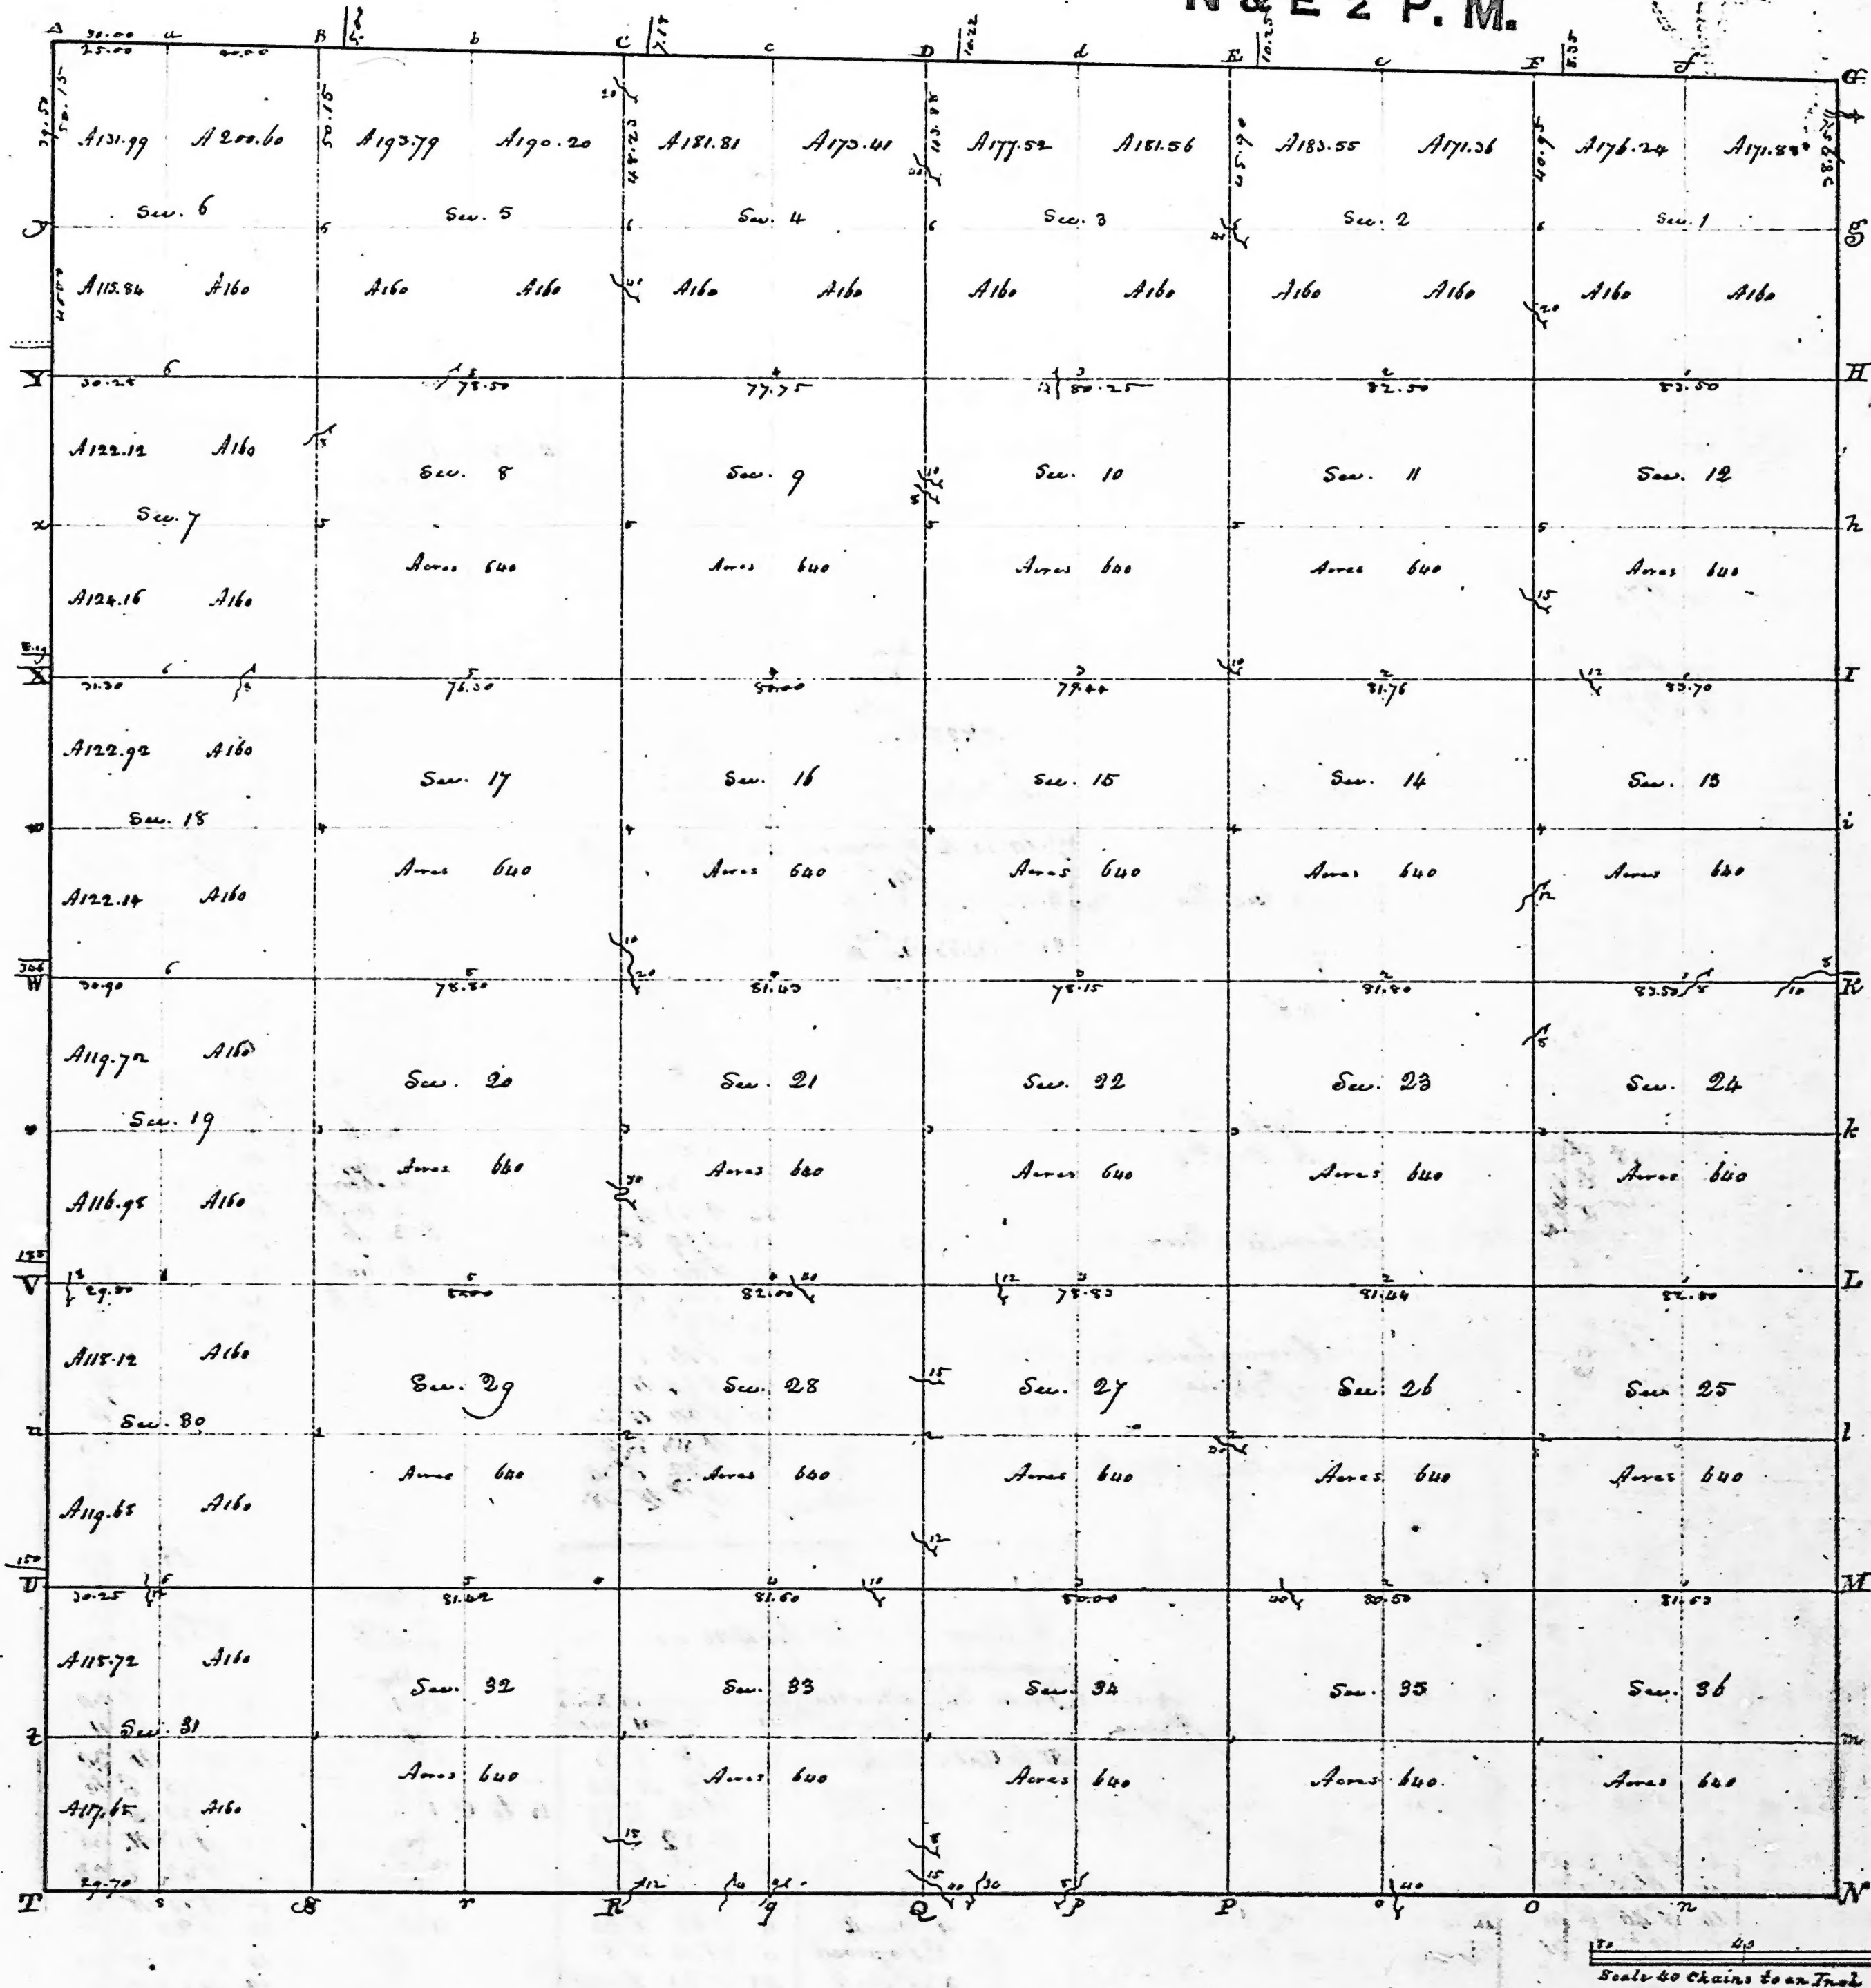 N & E 2 P. M.
A a B b C c D d E e F f G
25.00 40.00
10.22
50.15 50.15 48.23 45.90 40.95
A131.99 A200.60 A193.79 A190.20 A181.81 A173.41 A177.52 A181.56 A183.55 A171.36 A176.24
Sec. 6 Sec. 5 Sec. 4 Sec. 3 Sec. 2 Sec. 1
y g
A115.84 A160 A160 A160 A160 A160 A160 A160 A160 A160 A160 A160
Y 30.25 78.50 77.75 80.25 82.50 83.50 H
A122.12 A160
Sec. 8 Sec. 9 Sec. 10 Sec. 11 Sec. 12
Sec. 7
x h
Acres 640 Acres 640 Acres 640 Acres 640 Acres 640
A124.16 A160
X 31.30 76.30 80.00 79.44 81.76 83.70 I
A122.92 A160
Sec. 17 Sec. 16 Sec. 15 Sec. 14 Sec. 13
Sec. 18
w i
Acres 640 Acres 640 Acres 640 Acres 640 Acres 640
A122.14 A160
W 30.90 78.80 81.43 78.15 81.80 83.50 K
A119.72 A160
Sec. 20 Sec. 21 Sec. 22 Sec. 23 Sec. 24
Sec. 19
k
Acres 640 Acres 640 Acres 640 Acres 640 Acres 640
A116.98 A160
V 29.80 82.00 78.83 81.44 82.80 L
A118.12 A160
Sec. 29 Sec. 28 Sec. 27 Sec. 26 Sec. 25
Sec. 30
u l
Acres 640 Acres 640 Acres 640 Acres 640 Acres 640
A119.68 A160
150
U 30.25 81.42 81.60 80.00 80.50 81.63 M
A118.72 A160
Sec. 32 Sec. 33 Sec. 34 Sec. 35 Sec. 36
Sec. 31
t m
Acres 640 Acres 640 Acres 640 Acres 640 Acres 640
A117.65 A160
29.70
T s S r R q Q p P o O n N
80 40
Scale 40 Chains to an Inch